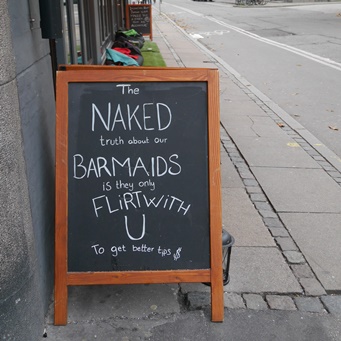 The
NAKED
truth about our
BARMAIDS
is they only
FLiRT WiTH
U
To get better tips $